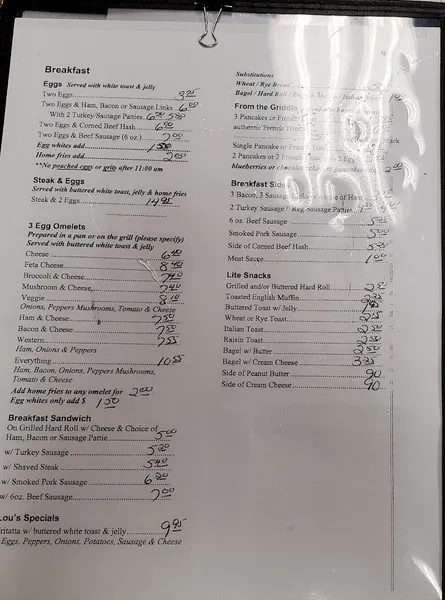 Breakfast
Eggs Served with white toast & jelly
Two Eggs 3.25
Two Eggs & Ham, Bacon or Sausage Links 6.00
With 2 Turkey/Sausage Patties
Two Eggs & Corned Beef Hash
Two Eggs & Beef Sausage (6 oz.) 7.00
Egg whites add 1.50
Home fries add 2.00
**No poached eggs or grits after 11:00 am
Steak & Eggs
Served with buttered white toast, jelly & home fries
Steak & 2 Eggs 14.95
3 Egg Omelets
Prepared in a pan or on the grill (please specify)
Served with buttered white toast & jelly
Cheese 6.40
Feta Cheese 8.40
Broccoli & Cheese 7.40
Mushroom & Cheese 7.40
Veggie 8.10
Onions, Peppers Mushrooms, Tomato & Cheese
Ham & Cheese 7.50
Bacon & Cheese 7.50
Western 7.55
Ham, Onions & Peppers
Everything 10.55
Ham, Bacon, Onions, Peppers Mushrooms,
Tomato & Cheese
Add home fries to any omelet for 2.00
Egg whites only add $ 1.50
Breakfast Sandwich
On Grilled Hard Roll w/ Cheese & Choice of
Ham, Bacon or Sausage Pattie 5.00
w/ Turkey Sausage 5.20
w/ Shaved Steak 5.40
w/ Smoked Pork Sausage 6.20
w/ 6oz. Beef Sausage 7.00
Lou's Specials
ritatta w/ buttered white toast & jelly 9.95
Eggs, Peppers, Onions, Potatoes, Sausage & Cheese
Substitutions
Wheat / Rye Bread
Bagel / Hard Roll
From the Griddle
3 Pancakes or
authentic French Toast
Single Pancake or
2 Pancakes or 2 French
blueberries or chocolate chip 2.00
Breakfast Side
3 Bacon, 3 Sausage
2 Turkey Sausage / Reg Sausage Patties
6 oz. Beef Sausage
Smoked Pork Sausage 5.00
Side of Corned Beef Hash
Meat Sauce 1.00
Lite Snacks
Grilled and/or Buttered Hard Roll
Toasted English Muffin
Buttered Toast w/ Jelly
Wheat or Rye Toast
Italian Toast 2.50
Raisin Toast 2.50
Bagel w/ Butter 2.50
Bagel w/ Cream Cheese
Side of Peanut Butter .90
Side of Cream Cheese .90